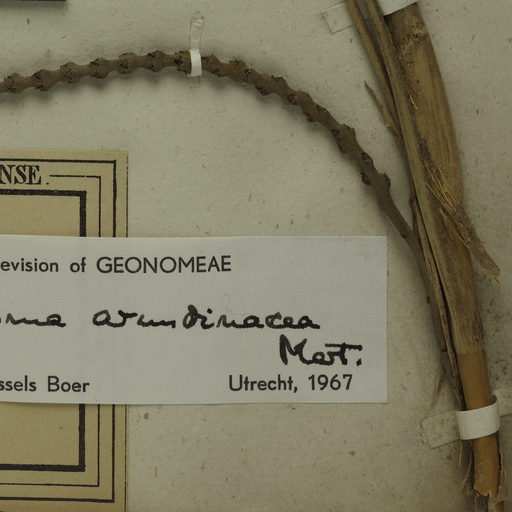 NSE.
evision of GEONOMEAE
oma arundinacea
Mart.
ssels Boer
Utrecht, 1967